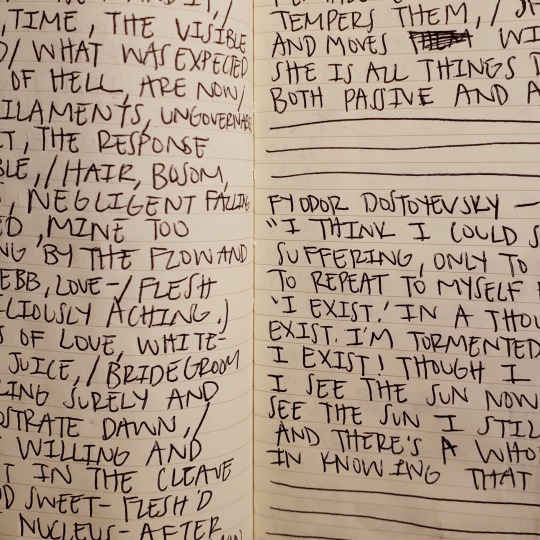 , TIME, THE VISIBLE
/ WHAT WAS EXPECTED
OF HELL, ARE NOW/
ILAMENTS, UNGOVERNABLE
T, THE RESPONSE
BLE, / HAIR, BOSOM,
, NEGLIGENT FALLING
ED, MINE TOO
NG BY THE FLOW AND
EBB, LOVE-/ FLESH
LICIOUSLY ACHING.)
S OF LOVE, WHITE-
JUICE, / BRIDEGROOM
LING SURELY AND
OSTRATE DAWN, /
WILLING AND
T IN THE CLEAVE
D SWEET-FLESH'D
NUCLEUS-AFTER
TEMPERS THEM, /
AND MOVES WI
SHE IS ALL THINGS D
BOTH PASSIVE AND A
FYODOR DOSTOYEVSKY —
"I THINK I COULD S
SUFFERING, ONLY TO
TO REPEAT TO MYSELF
'I EXIST.' IN A THOU
EXIST. I'M TORMENTED
I EXIST! THOUGH I
I SEE THE SUN NOW
SEE THE SUN I STIL
AND THERE'S A WHO
IN KNOWING THAT